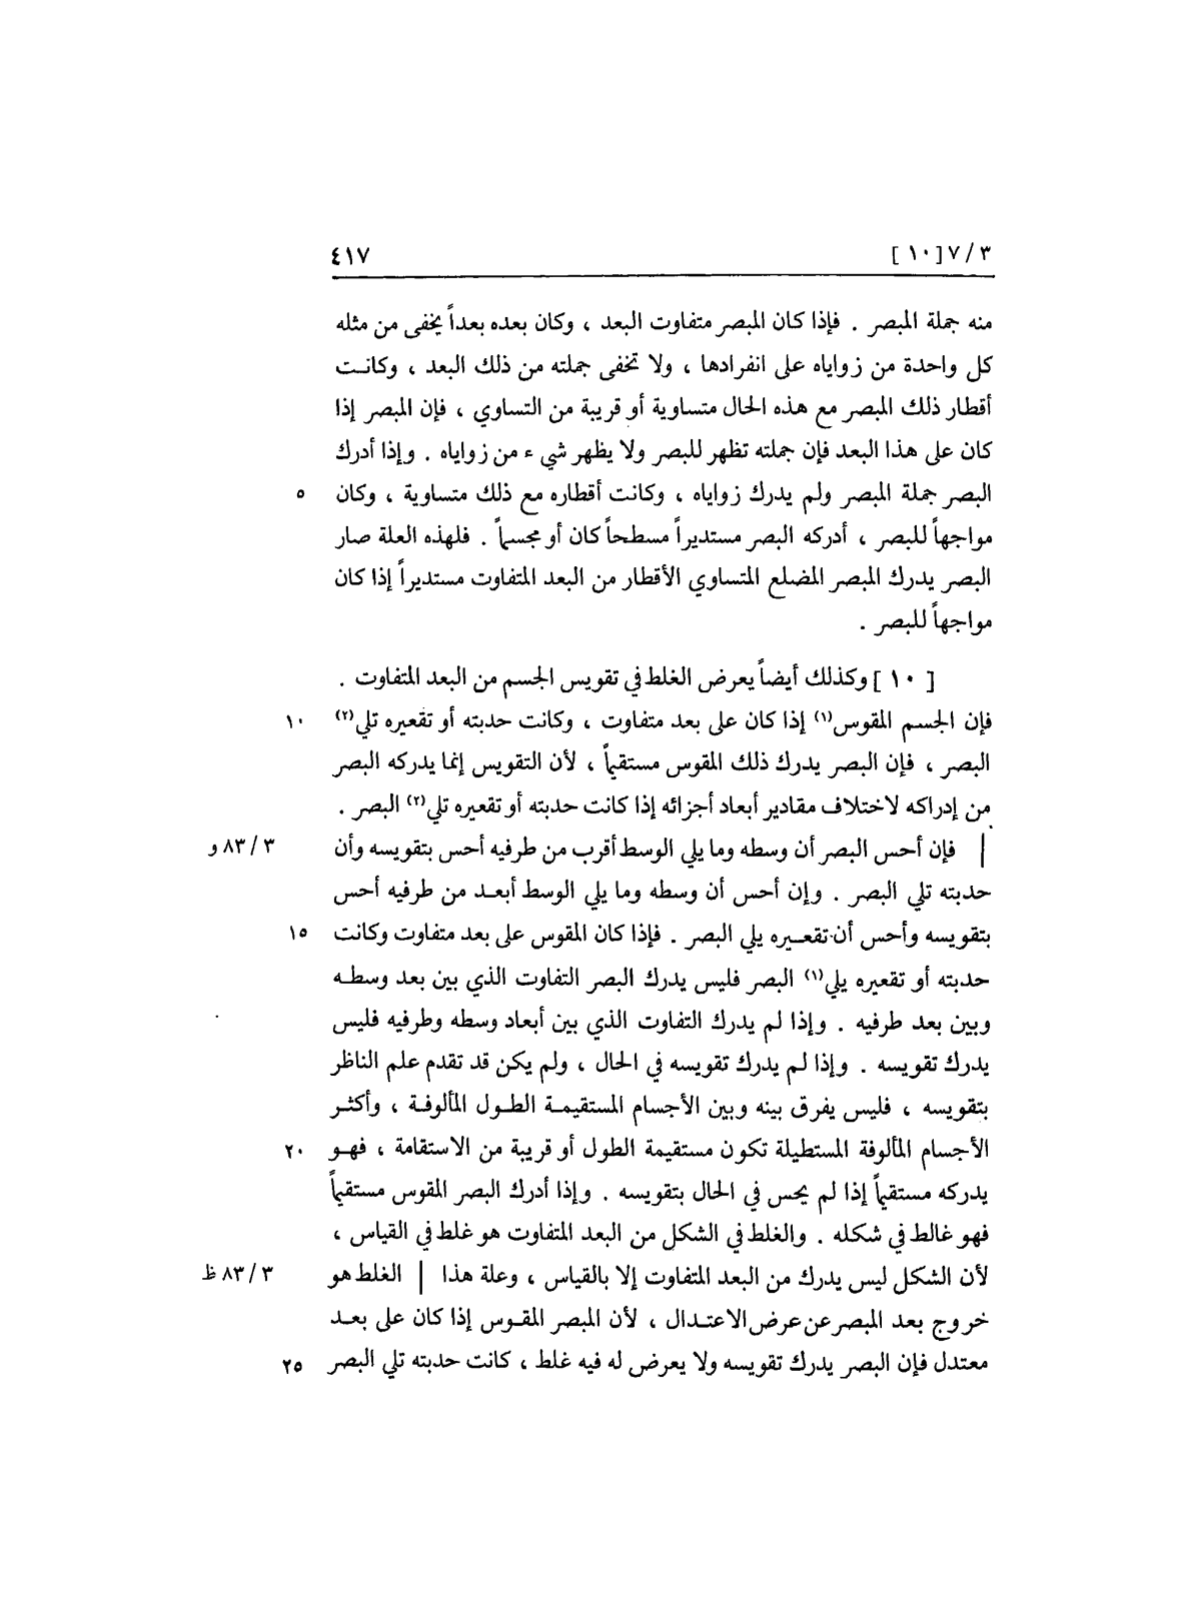 ٣ / ٧ [ ١٠ ] ٤١٧
منه جملة المبصر . فإذا كان المبصر متفاوت البعد ، وكان بعده بعداً يخفى من مثله
كل واحدة من زواياه على انفرادها ، ولا تخفى جملته من ذلك البعد ، وكانت
أقطار ذلك المبصر مع هذه الحال متساوية أو قريبة من التساوي ، فإن المبصر إذا
كان على هذا البعد فإن جملته تظهر للبصر ولا يظهر شيء من زواياه . وإذا أدرك
البصر جملة المبصر ولم يدرك زواياه ، وكانت أقطاره مع ذلك متساوية ، وكان ٥
مواجهاً للبصر ، أدركه البصر مستديراً مسطحاً كان أو مجسماً . فلهذه العلة صار
البصر يدرك المبصر المضلع المتساوي الأقطار من البعد المتفاوت مستديراً إذا كان
مواجهاً للبصر .
[ ١٠ ] وكذلك أيضاً يعرض الغلط في تقويس الجسم من البعد المتفاوت .
فإن الجسم المقوس(١) إذا كان على بعد متفاوت ، وكانت حدبته أو تقعيره تلي(٢) ١٠
البصر ، فإن البصر يدرك ذلك المقوس مستقيماً ، لأن التقويس إنما يدركه البصر
من إدراكه لاختلاف مقادير أبعاد أجزائه إذا كانت حدبته أو تقعيره تلي(٢) البصر .
| فإن أحس البصر أن وسطه وما يلي الوسط أقرب من طرفيه أحس بتقويسه وأن ٣ / ٨٣ و
حدبته تلي البصر . وإن أحس أن وسطه وما يلي الوسط أبعد من طرفيه أحس
بتقويسه وأحس أن تقعيره يلي البصر . فإذا كان المقوس على بعد متفاوت وكانت ١٥
حدبته أو تقعيره يلي(١) البصر فليس يدرك البصر التفاوت الذي بين بعد وسطه
وبين بعد طرفيه . وإذا لم يدرك التفاوت الذي بين أبعاد وسطه وطرفيه فليس
يدرك تقويسه . وإذا لم يدرك تقويسه في الحال ، ولم يكن قد تقدم علم الناظر
بتقويسه ، فليس يفرق بينه وبين الأجسام المستقيمة الطول المألوفة ، وأكثر
الأجسام المألوفة المستطيلة تكون مستقيمة الطول أو قريبة من الاستقامة ، فهو ٢٠
يدركه مستقيماً إذا لم يحس في الحال بتقويسه . وإذا أدرك البصر المقوس مستقيماً
فهو غالط في شكله . والغلط في الشكل من البعد المتفاوت هو غلط في القياس ،
لأن الشكل ليس يدرك من البعد المتفاوت إلا بالقياس ، وعلة هذا | الغلط هو ٣ / ٨٣ ظ
خروج بعد المبصر عن عرض الاعتدال ، لأن المبصر المقوس إذا كان على بعد
معتدل فإن البصر يدرك تقويسه ولا يعرض له فيه غلط ، كانت حدبته تلي البصر ٢٥